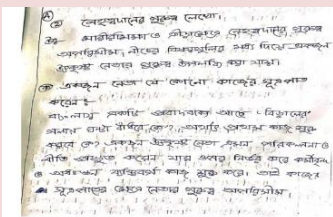 (A)
② নেতৃত্বদানের গুরুত্ব লেখো।
উঃ- শারীরশিক্ষা ও ক্রীড়াক্ষেত্রে নেতৃত্বদানের গুরুত্ব
অপরিসীম। নীচের বিষয়গুলির মধ্য দিয়ে একজন
উৎকৃষ্ট নেতার গুরুত্ব উপলব্ধি করা যায়।
① একজন নেতা যে কোনো কাজের সূত্রপাত
করেন :
বাংলায় একটি প্রবাদবাক্য আছে - বিড়ালের
গলায় ঘণ্টা বাঁধবে কে? অর্থাৎ প্রথম কাজ শুরু
করবে কে? একজন উৎকৃষ্ট নেতা প্রথম পরিকল্পনা ও
নীতি করেন যার ওপর নির্ভর করে কর্মীবৃন্দ
ও কাজ শুরু করে। তাই কাজের
সূত্রপাতের ক্ষেত্রে নেতার গুরুত্ব অপরিসীম।